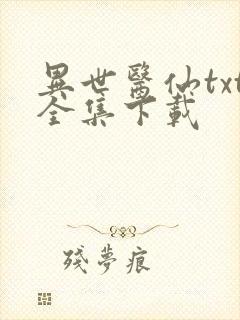 異世醫仙txt
全集下載
殘夢痕